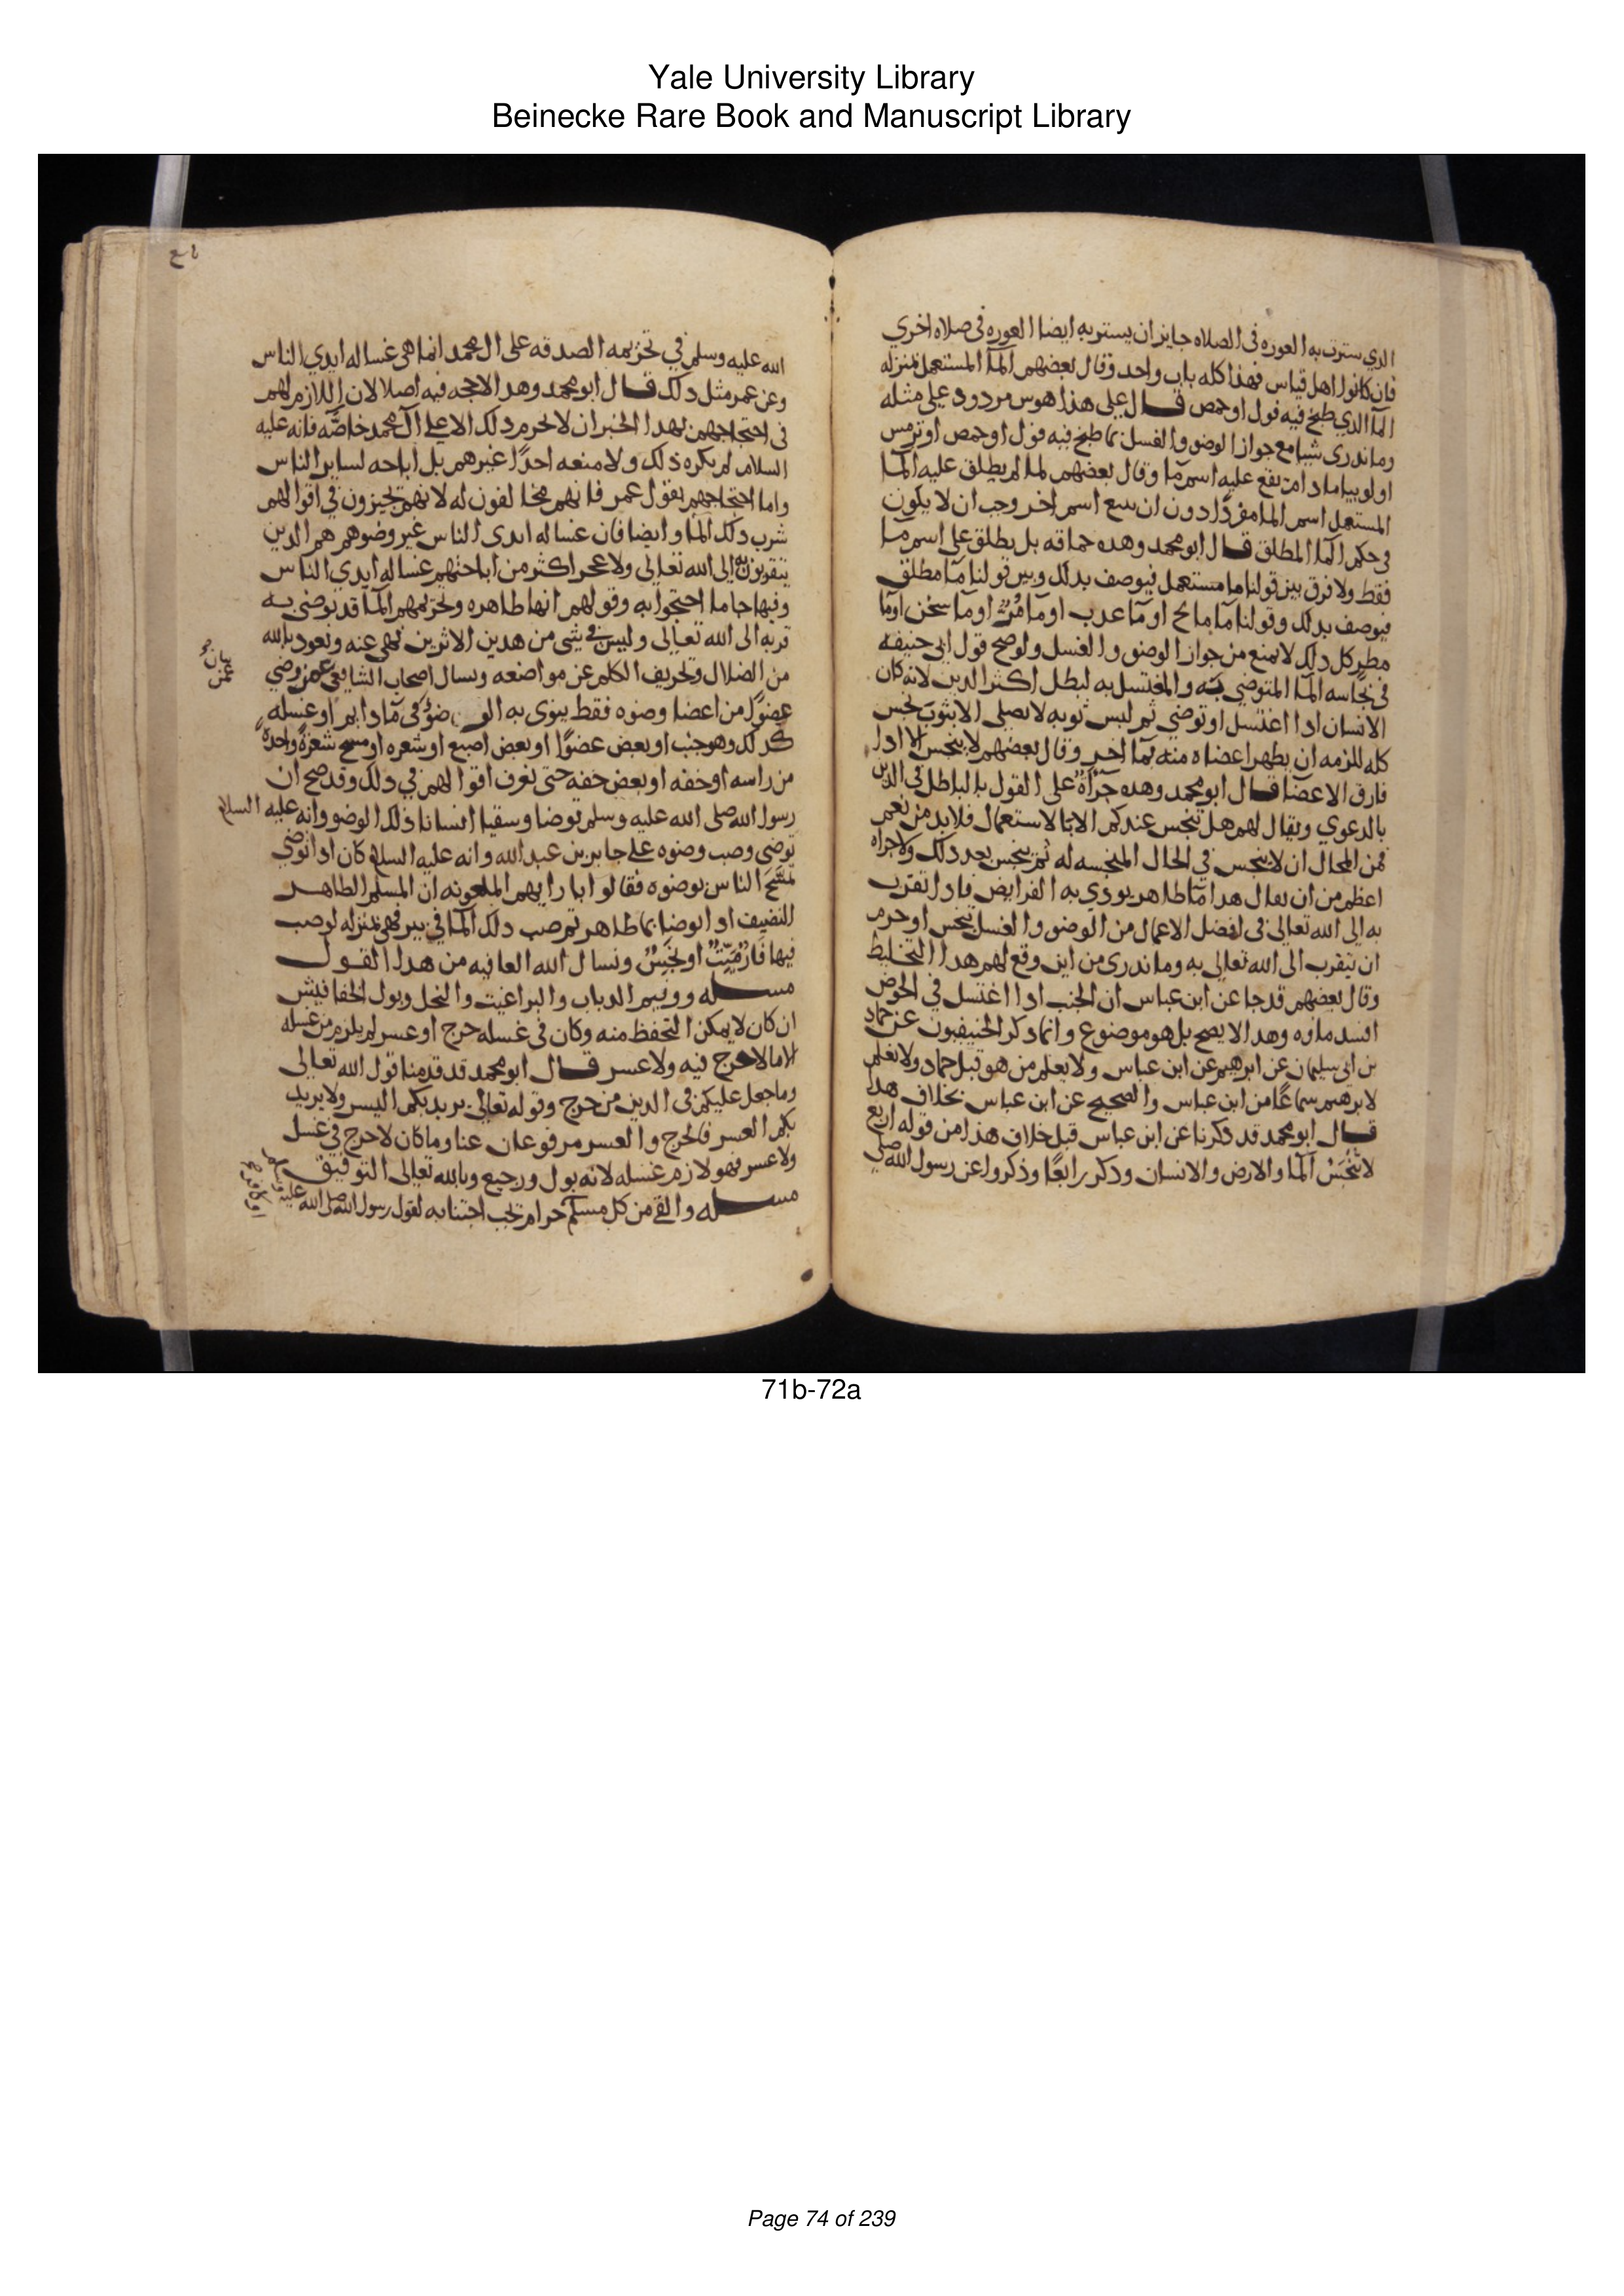 Yale University Library
Beinecke Rare Book and Manuscript Library
الدي سترت به العوره في الصلاه جايز ان يستتر به ايضا العوره في صلاه اخري
فان كانوا اهل قياس فهذا كله باب واحد وقال بعضهم المآ المستعمل بمنزله
المآ الدي طبخ فيه فول او حمص قال علي هذا هوس مردود علي مثله
وما ندري شيا مع جواز الوضو والغسل بما طبخ فيه فول او حمص او ترمس
او لوبيا ما دام يقع عليه اسم مآ وقال بعضهم لما لم يطلق عليه المآ
المستعمل اسم الما مفردًا دون ان يتبع اسم اخر وجب ان لا يكون
في حكم المآ المطلق قال ابو محمد وهده حماقه بل يطلق علي اسم مآ
فقط ولا فرق بين قولنا ما مستعمل فيوصف بدلك وبين قولنا مآ مطلق
فيوصف بدلك وقولنا مآ مالح او مآ عدب او مآ مُرٌّ او مآ سخن او مآ
مطر كل دلك لا يمنع من جواز الوضو والغسل ولو صح قول ابي حنيفه
في نجاسه المآ المتوضي به والمغتسل به لبطل اكثر الدين لانه كان
الانسان ادا اغتسل او توضي ثم لبس ثوبه لا يصلي الا بثوب نجس
كله للزمه ان يطهر اعضاه منه بمآ اخر وقال بعضهم لا ينجس الا ادا
فارق الاعضا قال ابو محمد وهده جرأة علي القول بالباطل في الدين
بالدعوي ويقال لهم هل تنجس عندكم الا بالاستعمال فلا بد من نعم
فمن المحال ان لا ينجس في الحال المنجسه له ثم ينجس بعد دلك ولا جراه
اعظم من ان يقال هدا مآ طاهر يودي به الفرايض فادا تقرب
به الي الله تعالي في افضل الاعمال من الوضو والغسل تنجس او حرم
ان يتقرب الي الله تعالي به وما ندري من اين وقع لهم هدا التخليط
وقال بعضهم قد جا عن ابن عباس ان الجنب ادا اغتسل في الحوض
افسد ماوه وهدا لا يصح بل هو موضوع وانما دكر الحنيفيون عن حماد
بن ابي سليمان عن ابرهيم عن ابن عباس ولا يعلم من هو قبل حماد ولا نعلم
لابرهيم سماعًا من ابن عباس والصحيح عن ابن عباس بخلاف هدا
قال ابو محمد قد دكرنا عن ابن عباس قبل خلاف هذا من قوله اربع
لا تنجَسْ المآ والارض والانسان ودكر رابعًا وذكروا عن رسول الله صلي
الله عليه وسلم في تحريمه الصدقه علي ال محمد انما هي غساله ايدي الناس
وعن عمر مثل دلك قال ابو محمد وهدا لا حجه فيه اصلا لان اللازم لهم
في احتجاجهم بهدا الخبر ان لا يحرم دلك الا علي آل محمد خاصّه فانه عليه
السلام لم يكره ذلك ولا منعه احدًا غيرهم بل اباحه لساير الناس
واما احتجاجهم بقول عمر فانهم مخالفون له لانهم يجيزون في اقوالهم
شرب دلك المآ وايضا فان غساله ايدي الناس غير وضوهم هم الدين
يتقربون به الي الله تعالي ولا عجب اكثر من اباحتهم غساله ايدي الناس
وفيها جا ما احتجوا به وقولهم انها طاهره وتحريمهم المآ قد توضي به
قربه الي الله تعالي وليس في شي من هدين الاثرين نهي عنه ونعود بالله
من الضلال وتحريف الكلم عن مواضعه ونسال اصحاب الشافعي عمن وضي
عضوًا من اعضا وضوه فقط ينوي به الوضو في مآ دايم او غسله
كدلك وهو جنب او بعض عضو او بعض اصبع او شعره او مسح شعرة واحدة
من راسه او خفه او بعض خفه حتي نعرف اقوالهم في دلك وقد صح ان
رسول الله صلى الله عليه وسلم توضا وسقيا انسانا ذلك الوضو وانه عليه السلام
توضي وصب وضوه علي جابر بن عبد الله وانه عليه السلام كان ادا توضي
تمسّح الناس بوضوه فقالوا بارايهم الملعونه ان المسلم الطاهر
النضيف ادا توضا بما طاهر ثم صب دلك المآ في بير فهي بمنزله لو صب
فيها فار مَيّتٌ او نجَسٌ ونسال الله العافيه من هدا القول
مسله وونيم الدباب والبراغيت والنحل وبول الخفافيش
ان كان لا يمكن التحفظ منه وكان في غسله حرج او عسر لم يلزم من غسله
الا ما لا حرج فيه ولا عسر قال ابو محمد قد قدمنا قول الله تعالي
وما جعل عليكم في الدين من حرج وقوله تعالي يريد بكم اليسر ولا يريد
بكم العسر فالحرج والعسر مرفوعان عنا وما كان لا حرج في غسل
ولا عسر فهو لازم غسله لانه بول ورجيع وبالله تعالي التوفيق
مسله والقي من كل مسلم حرام تجب اجتنابه لقول رسول الله صلى الله عليه
71b-72a
Page 74 of 239